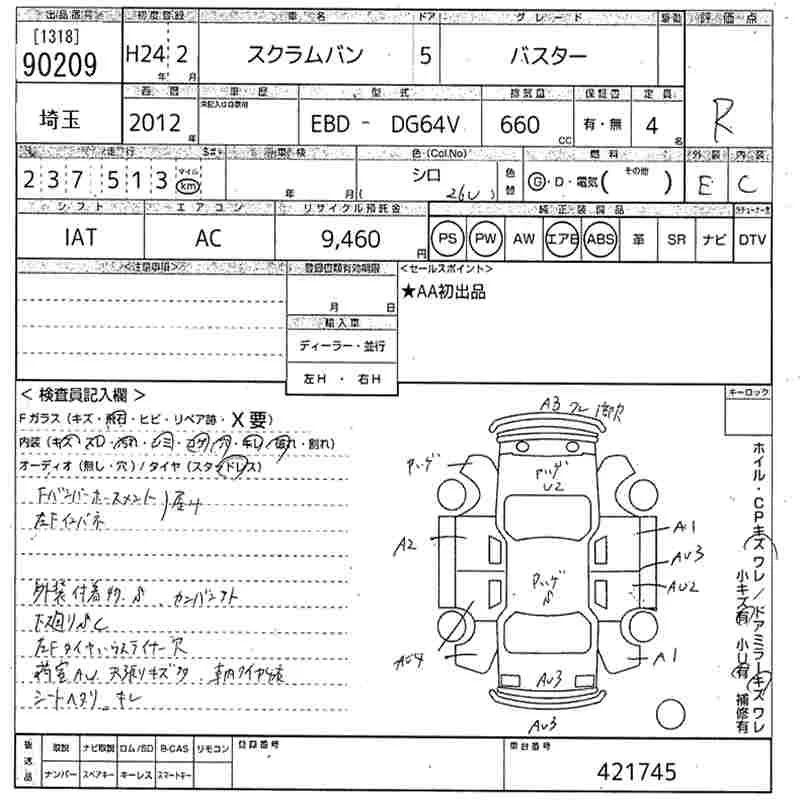 出品番号 初度登録 車名 ドア グレード 駆動 評価点
[1318]
90209 H24年 2月 スクラムバン 5 バスター R
埼玉 西暦 車歴 型式 排気量 保証書 定員
未記入は自家用
2012年 EBD - DG64V 660cc 有・無 4名
走行 車検 色(Col.No) 燃料 外装 内装
237,513 マイル km 年 月 シロ (26U) 色替 G・D・電気( その他 ) E C
シフト エアコン リサイクル預託金 純正装備品
IAT AC 9,460円 PS PW AW エアB ABS 革 SR ナビ DTV
<注意事項> 登録書類有効期限 <セールスポイント>
月 日 ★AA初出品
輸入車
ディーラー・並行
左H ・ 右H
<検査員記入欄> キーロック
Fガラス(キズ・飛石・ヒビ・リペア跡・X要)
内装(キズ・スレ・汚れ・シミ・コゲ・穴・キレ・破れ・割れ)
オーディオ(無し・穴)/タイヤ(スタッドレス)
Fバンパーホースメント
左Fインパネ
外装付着物
下廻り
左Fタイヤハウスライナー穴
荷室AU 天張りキズ
シートヘタリ キレ
A3 ワレ
ハゲ
ハゲ U2
A1
A2
AU3
ハゲ
AU2
AU4
A1
AU3
AU3
ホイル・CPキズワレ/ドアミラーキズワレ
小キズ有 小U有 補修有
後送品 取説 ナビ取説 ロム/SD B-CAS リモコン 登録番号 車台番号
ナンバー スペアキー キーレス スマートキー 421745